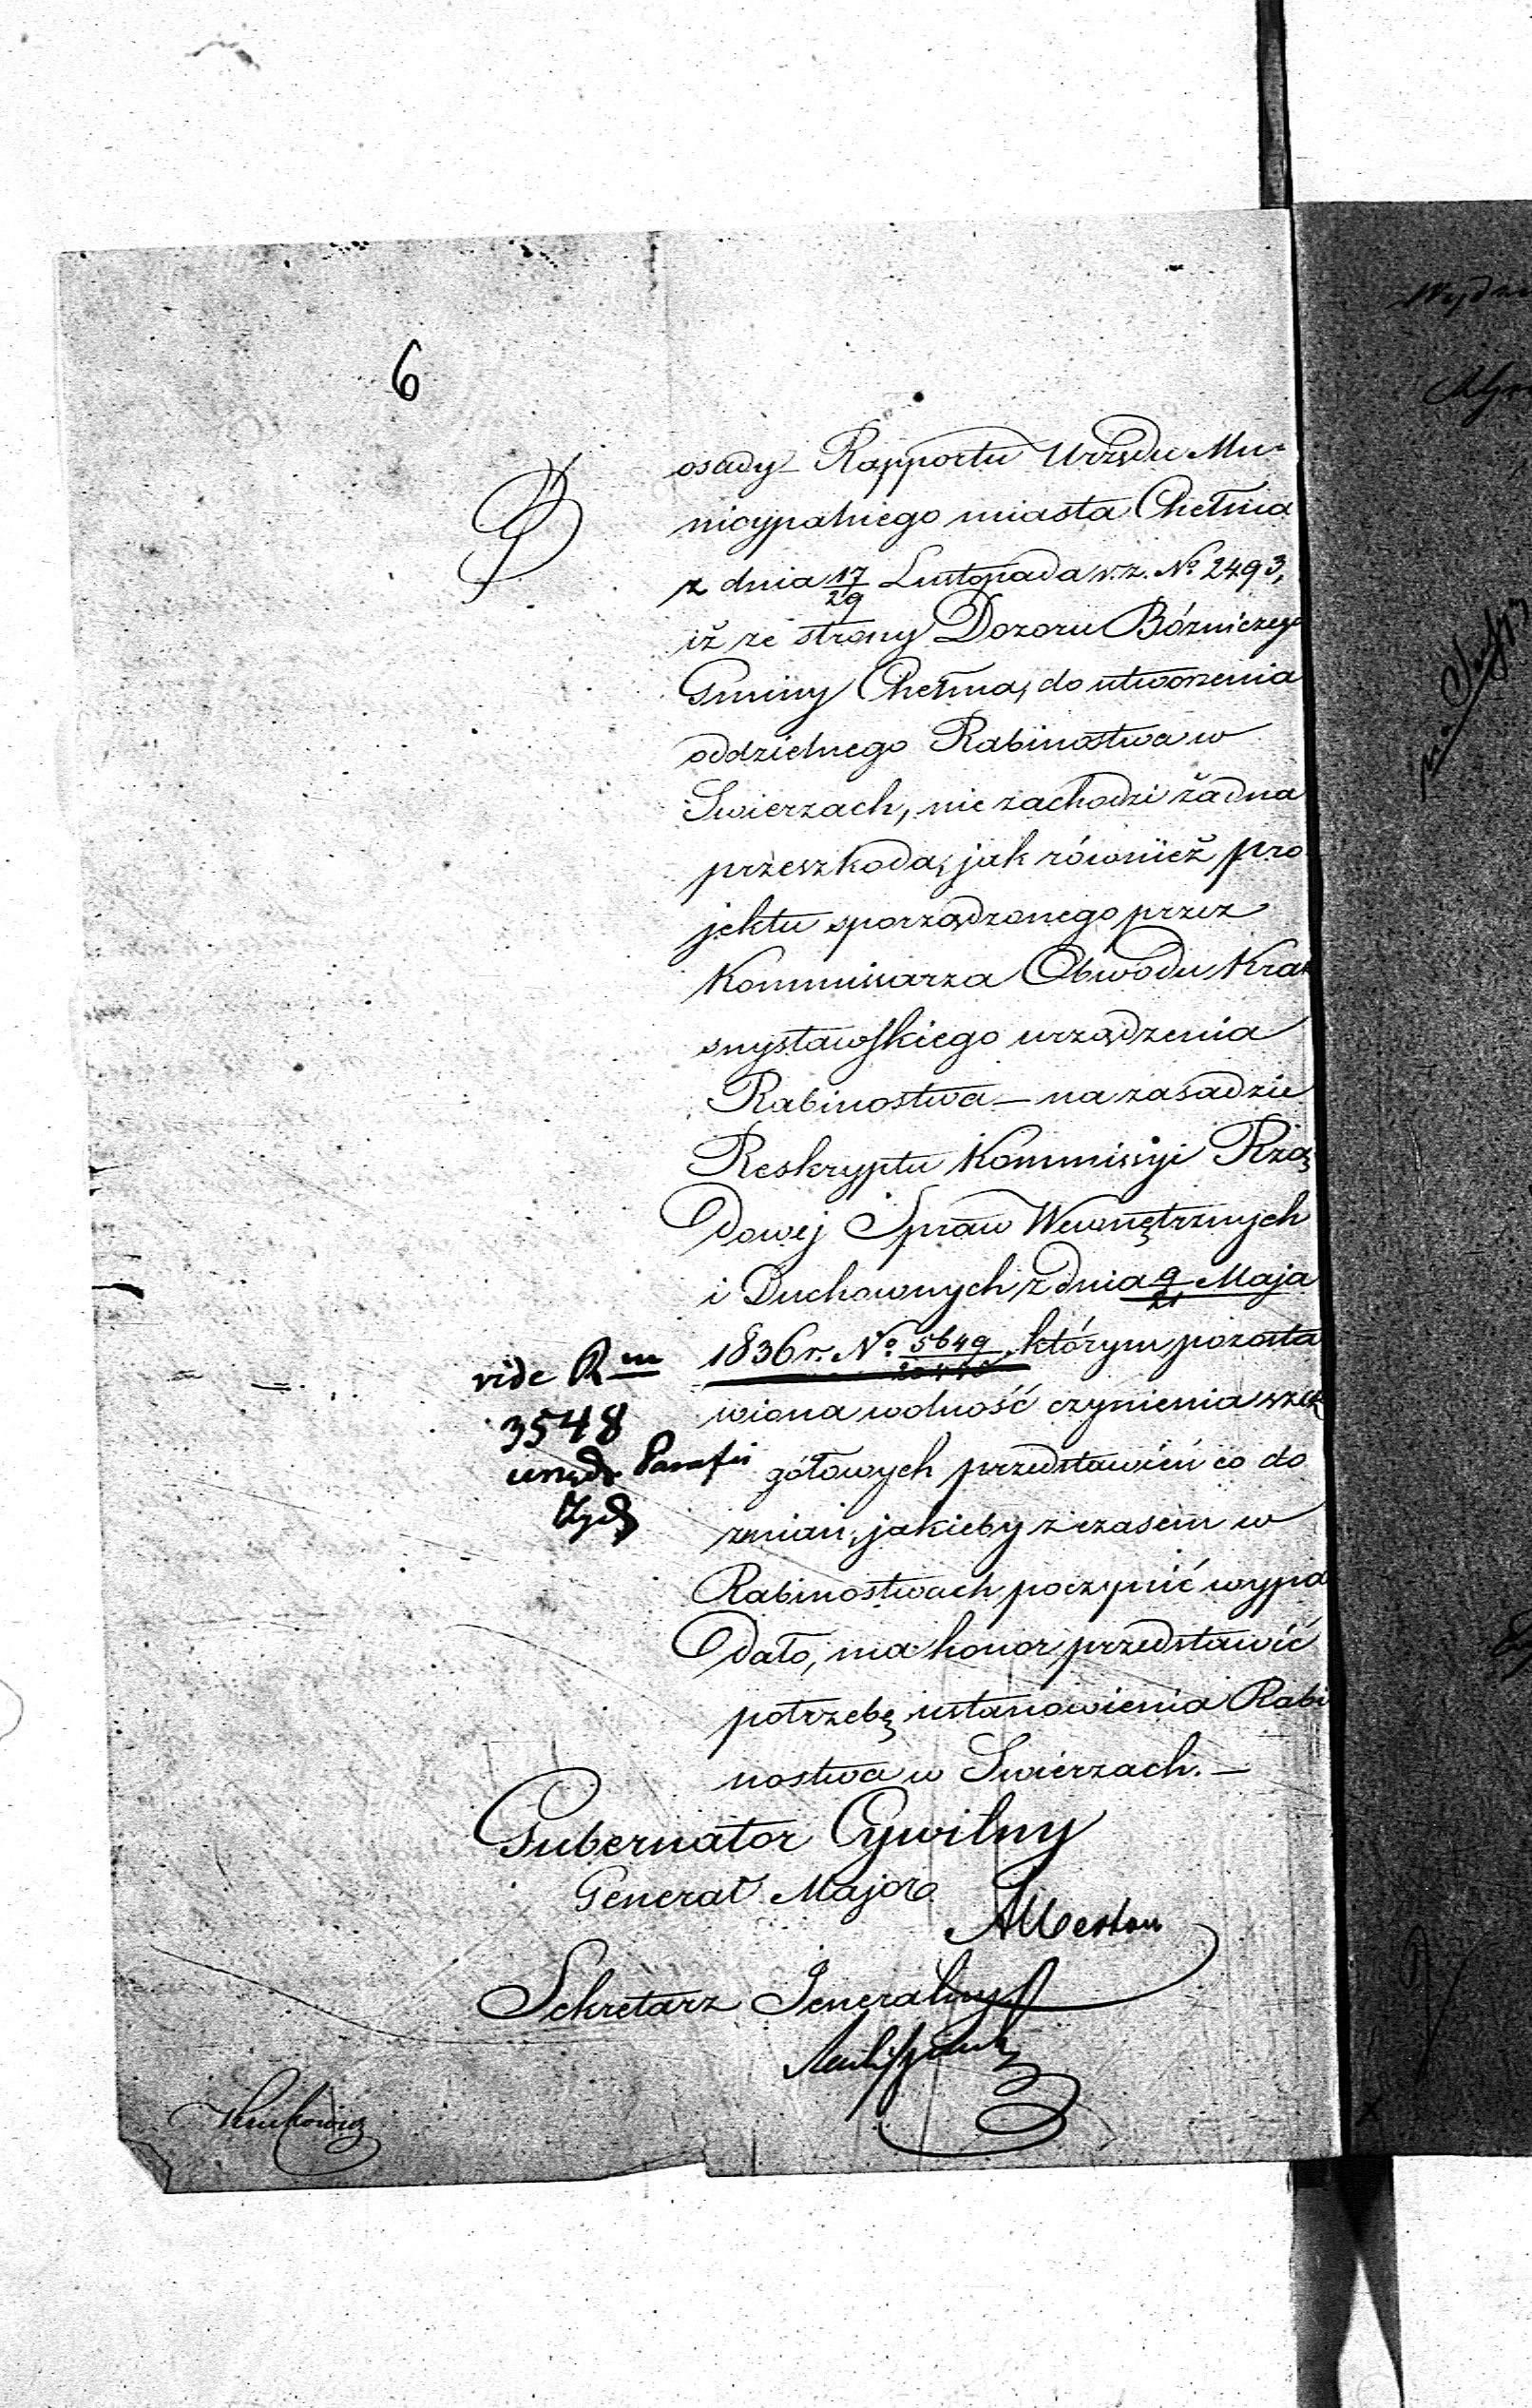 6
osady Rapportu Urzędu Mu-
nicypalnego miasta Chełma
z dnia 17/29 Listopada v. z. No 2493,
iż ze strony Dozoru Bóżniczego
Gminy Chełma, do utworzenia
oddzielnego Rabinostwa w
Swierzach, nie zachodzi żadna
przeszkoda, jak również pro
jektu sporządzonego przez
Kommissarza Obwodu Kra
snystawskiego urządzenia
Rabinostwa — na zasadzie
Reskryptu Kommissyi Rzą
dowej Spraw Wewnętrznych
i Duchownych z dnia 9/21 Maja
1836 r. No 5649 którym pozosta
wiona wolność czynienia szcze
gółowych przedstawień co do
zmian, jakieby z czasem w
Rabinostwach poczynić wypa
dało, ma honor przedstawić
potrzebę ustanowienia Rabi
nostwa w Swierzach. —
vide Rm
3548
urządz Parafii
Żyd
Gubernator Cywilny
Generał Major
Sekretarz Jeneralny